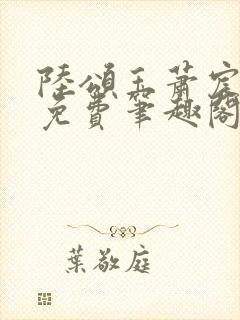 陸頌玉蕭宸
免費筆趣閣
葉敬庭